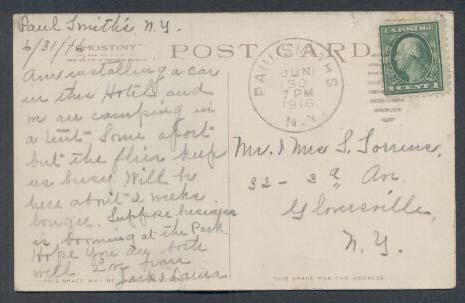 Paul Smith's, N.Y.
"PHOSTINT"
POST CARD
Am installing a car
in this Hotel and
am camping in
a tent. Some sport
but the flies keep
us busy. Will be
here about 2 weeks
longer. Suppose business
is booming at the Park
Hope you are both
well. Love from
Jack & Laura
PAUL SMITHS
JUN
7 PM
1916
N.Y.
U.S. POSTAGE
1 CENT 1
Mr. & Mrs. S.
32 - 3d Ave.
Gloversville,
N. Y.
THIS SPACE MAY BE
THIS SPACE FOR THE ADDRESS